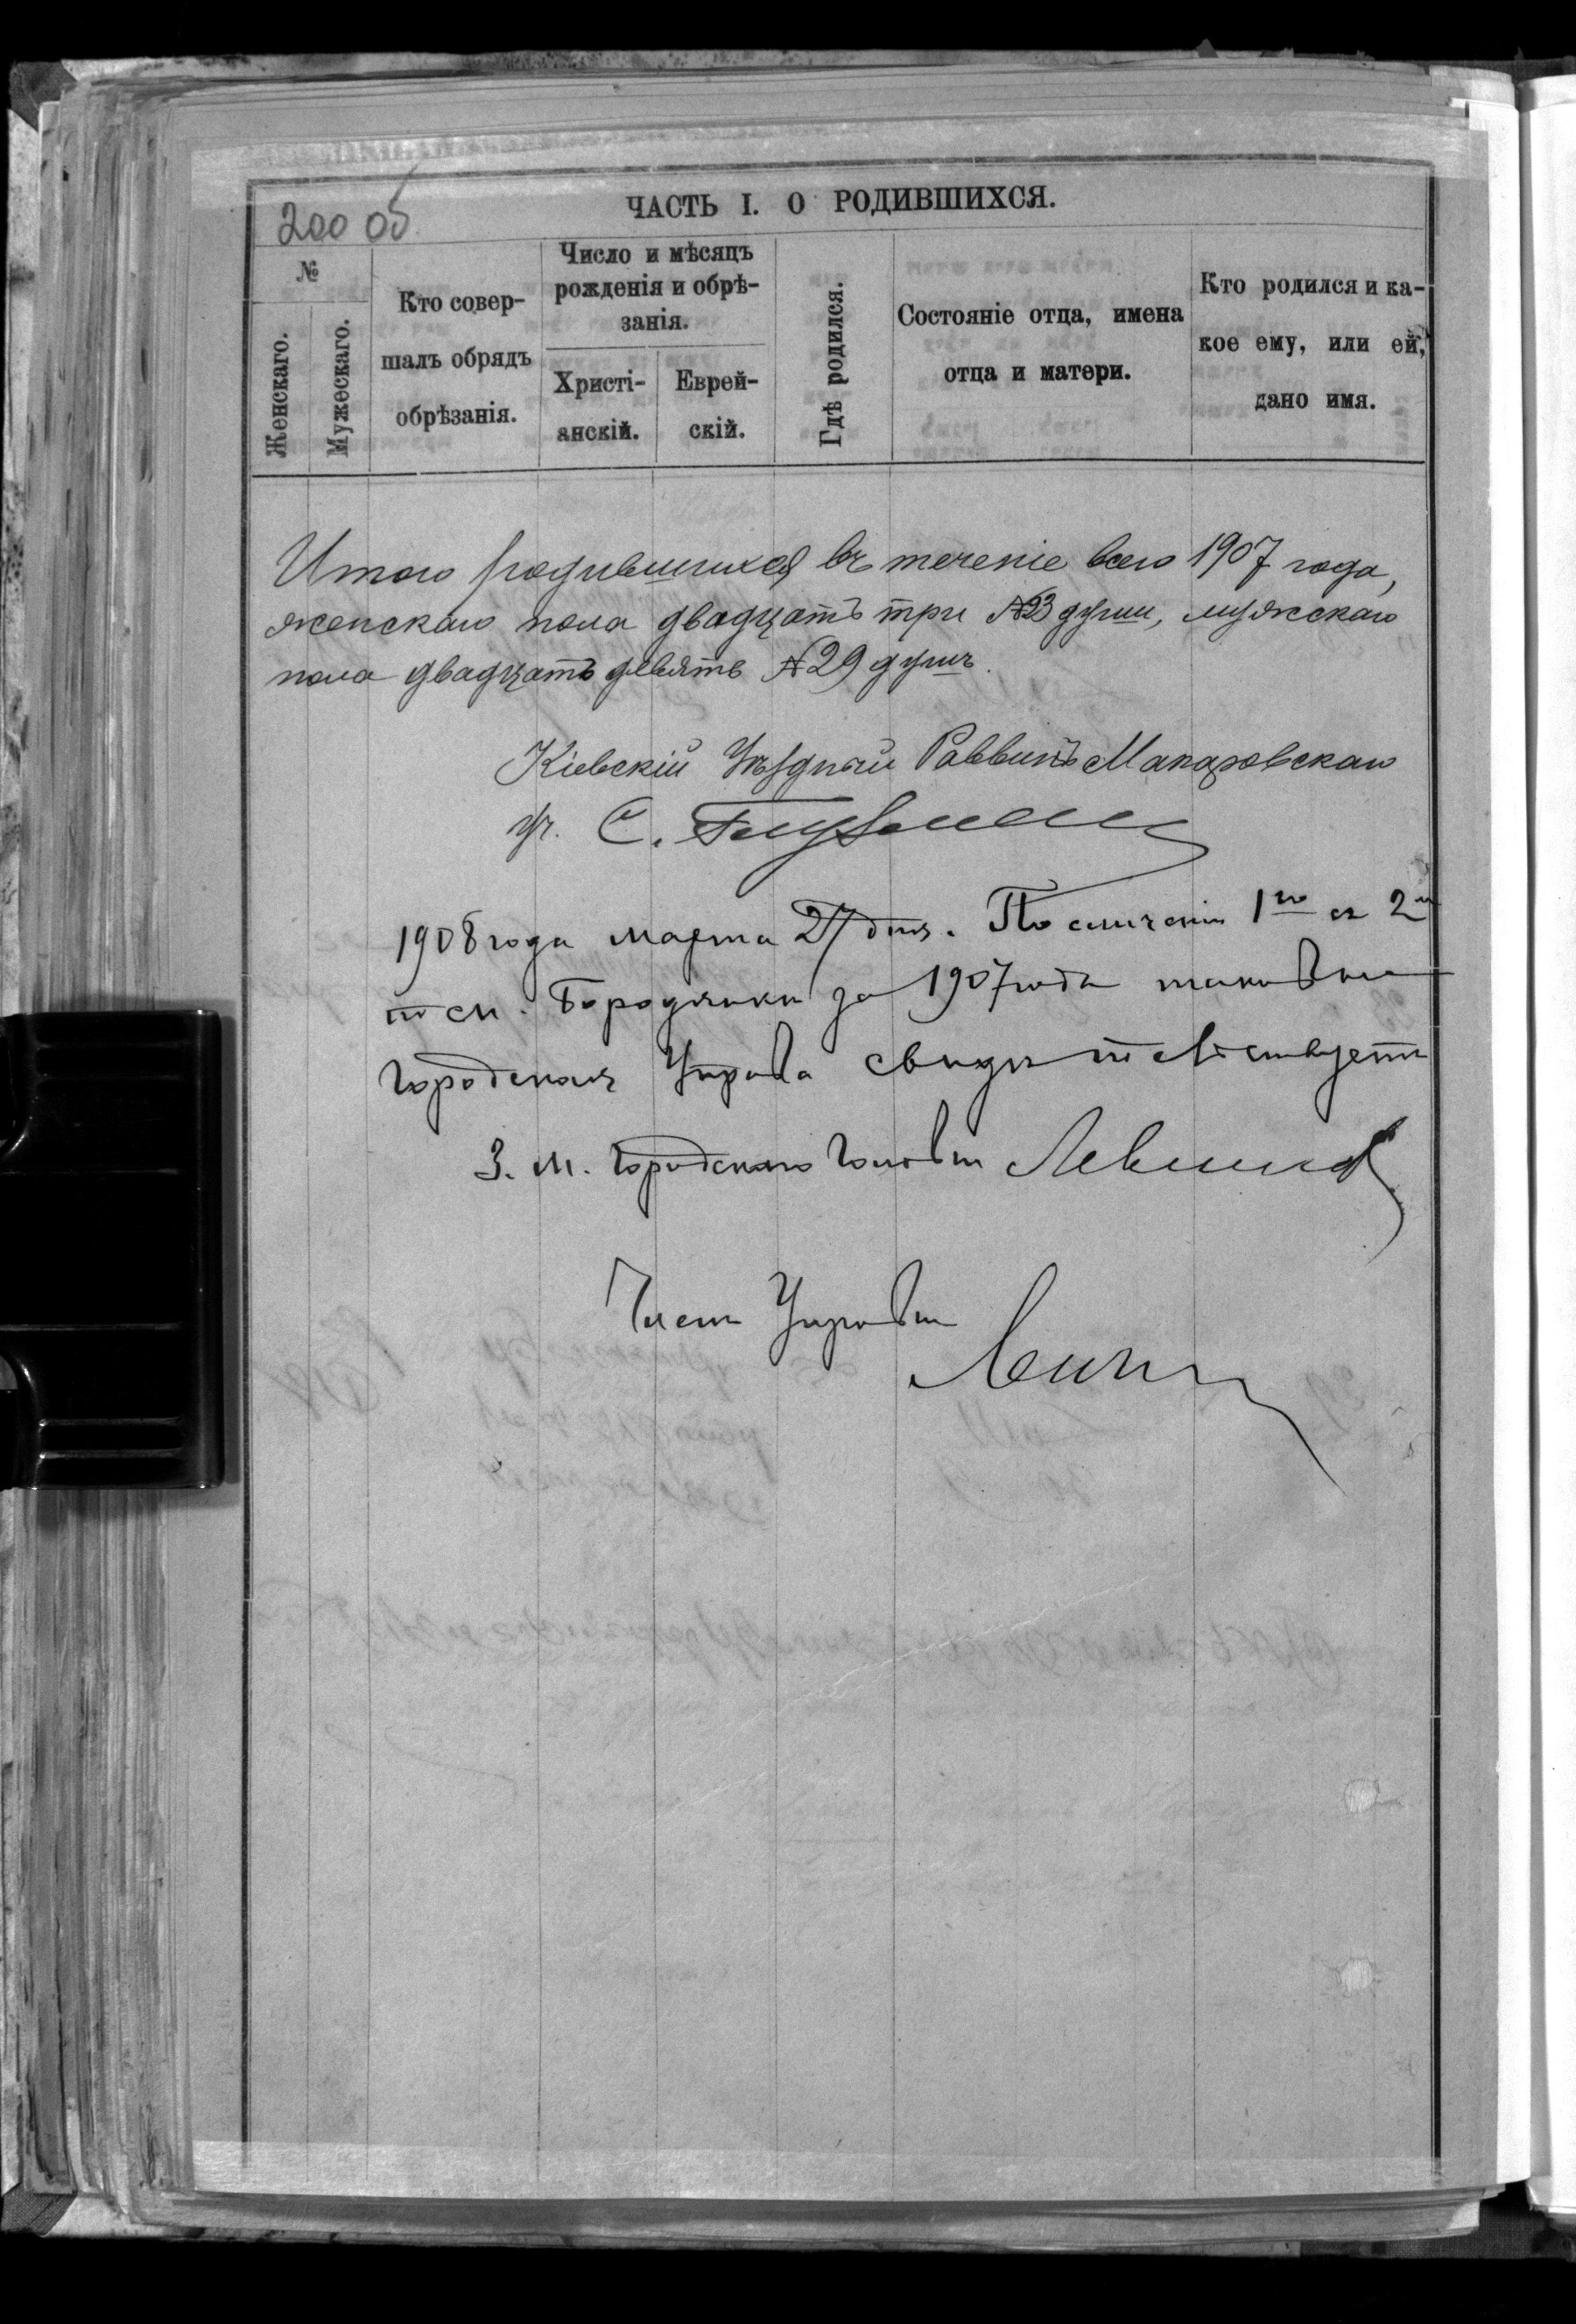 200 об
ЧАСТЬ I. О РОДИВШИХСЯ.
№
Женскаго.
Мужескаго.
Кто совер-
шалъ обрядъ
обрѣзанія.
Число и мѣсяцъ
рожденія и обрѣ-
занія.
Христі-
анскій.
Еврей-
скій.
Гдѣ родился.
Состояніе отца, имена
отца и матери.
Кто родился и ка-
кое ему, или ей,
дано имя.
Итого родившихся въ теченіе всего 1907 года,
женскаго пола двадцать три №23 души, мужскаго
пола двадцать девять №29 душъ.
Кіевскій Уѣздный Раввинъ Макаровскаго
уч. С.
1908 года марта 27 дня. По сличеніи 1го съ 2м
м. Бородянки за 1907 годъ таковыя
Городская Управа свидѣтельствуетъ
З. М. Городского Головы
Членъ Управы